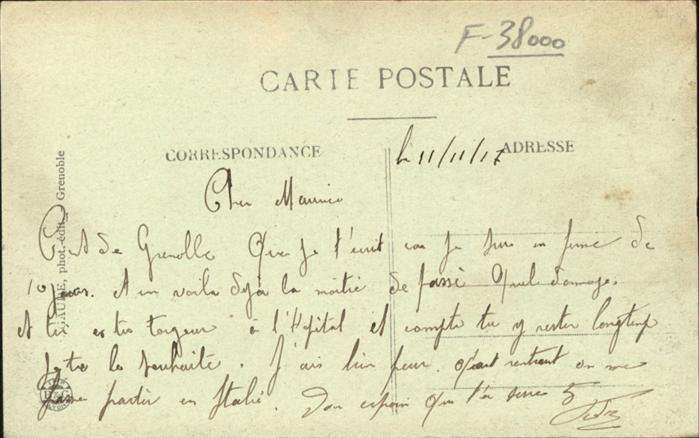 F-38000
CARTE POSTALE
CORRESPONDANCE
ADRESSE
le 11/11/17
phot.-édit., Grenoble
Cher Maurice
C'est de Grenoble Que je t'écrit car je suis en perme de
10 jours. et en voila dejà la moitie de passé Quel domage.
et tu es tu toujour à l'Hopital et compte tu y rester longtemp
je te le souhaite. J'ais bien peur. qu'aut rentrant on me
fasse partir en Itali. Don espoir qu